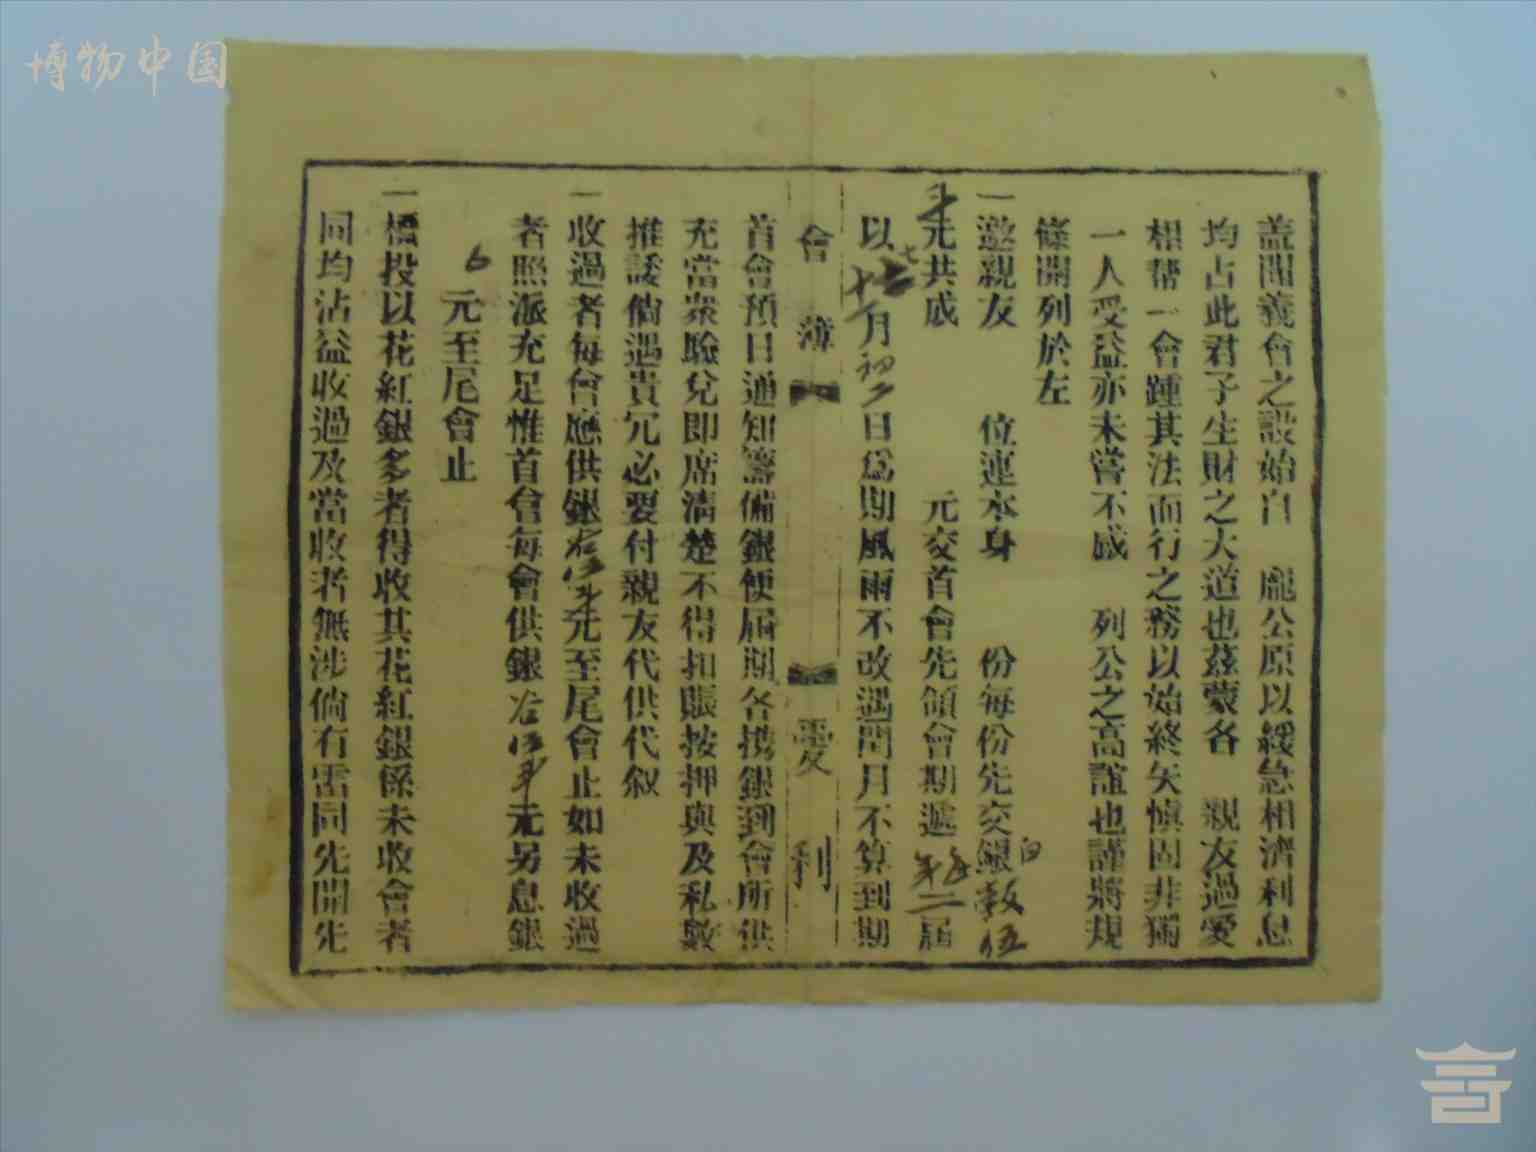 博物中国
蓋聞義會之設始自　龐公原以緩急相濟利息
均占此君子生財之大道也茲蒙各　親友過愛
相幫一會踵其法而行之務以始終矢慎固非獨
一人受益亦未嘗不感　列公之高誼也謹將規
條開列於左
一邀親友　位連本身　份每份先交銀白穀伍
元共成　元交首會先領會期遞年二屆
以十月初二日為期風雨不改遇閏月不算到期
會簿　愛利
首會預日通知籌備銀便屆期各携銀到會所供
充當衆驗兌即席清楚不得扣賬按押與及私數
推諉倘遇貴冗必要付親友代供代叙
一收過者每會應供銀元至尾會止如未收過
者照派充足惟首會每會供銀元另息銀
元至尾會止
一標投以花紅銀多者得收其花紅銀係未收會者
同均沾益收過及當收者無涉倘有雷同先開先